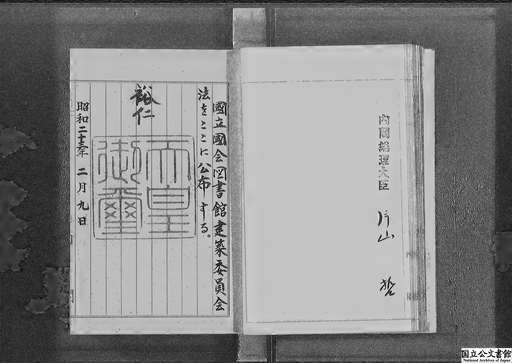 內閣總理大臣　片山　哲
國立國会図書館建築委員会
法をここに公布する。
裕仁
天皇
御璽
昭和二十三年二月九日
国立公文書館
National Archives of Japan